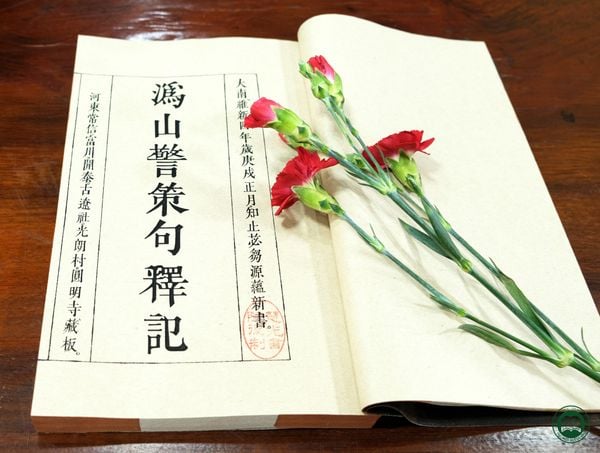 大南維新四年歲庚戌正月知止苾芻源蘊新書。
溈山警策句釋記
河東常信富川開泰古遼社光朗村圓明寺藏板。